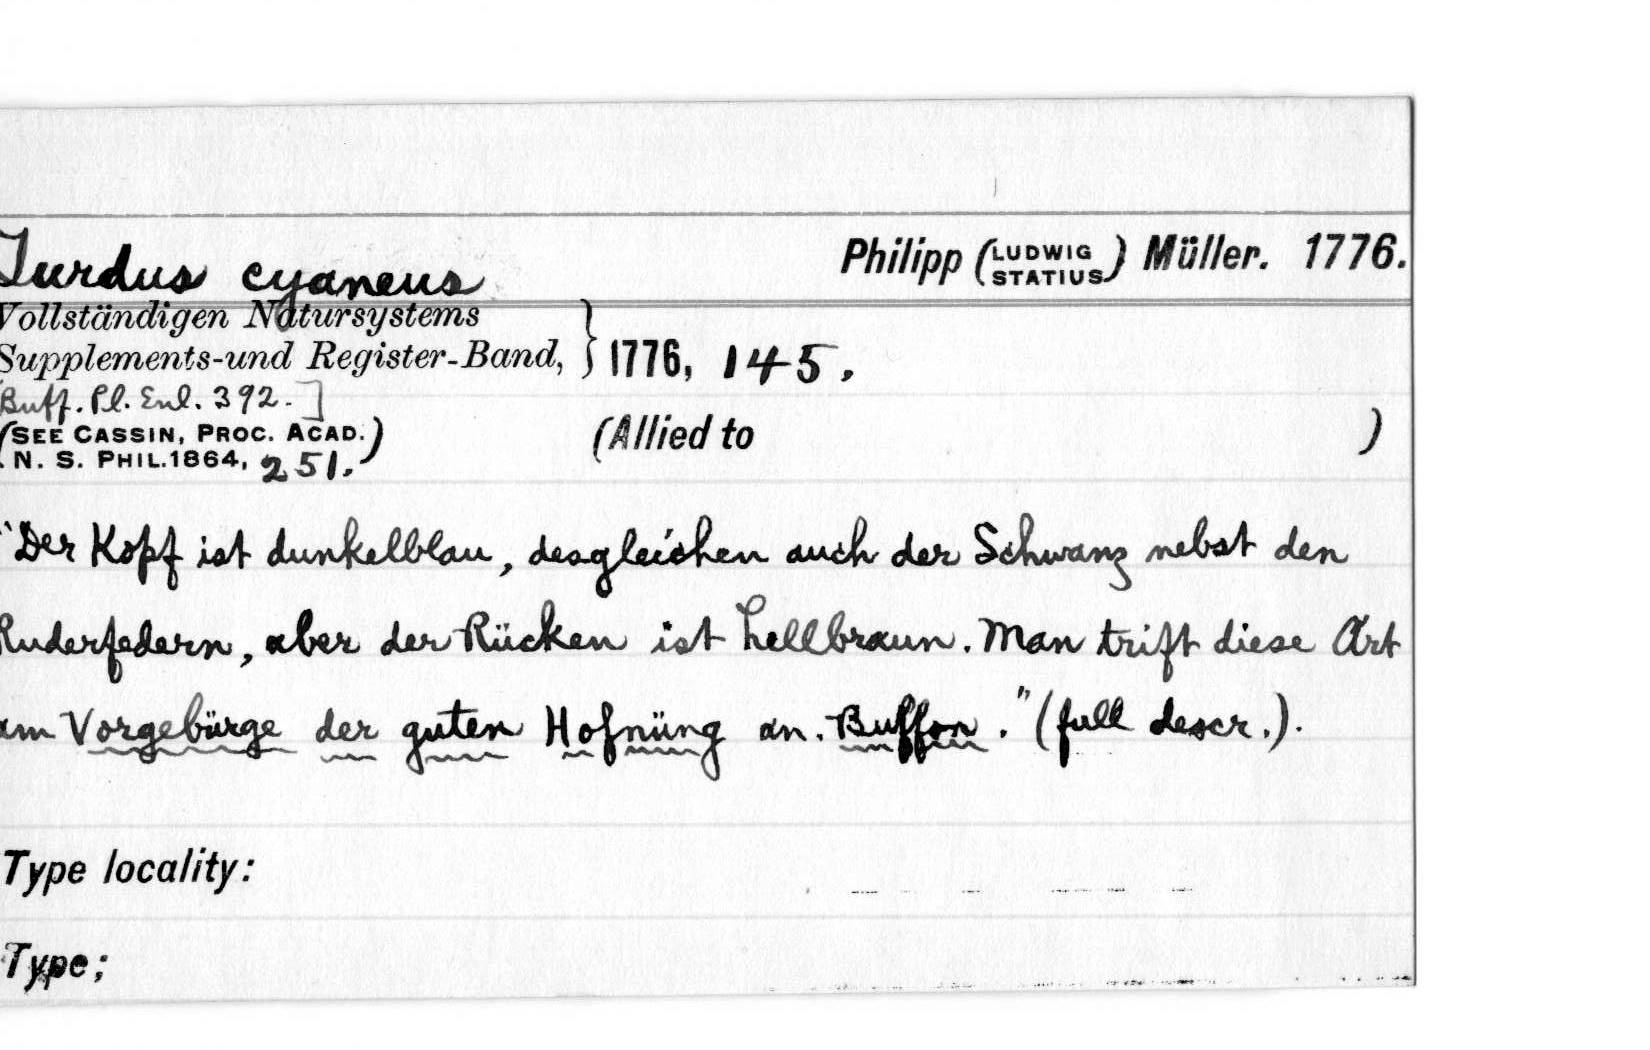 Turdus cyaneus
Philipp (LUDWIG STATIUS) Müller. 1776.
Vollständigen Natursystems
Supplements-und Register-Band, } 1776, 145.
[Buff. Pl. Enl. 392.]
(SEE CASSIN, PROC. ACAD.
N. S. PHIL. 1864, 251.)
(Allied to )
"Der Kopf ist dunkelblau, desgleichen auch der Schwanz nebst den
Ruderfedern, aber der Rücken ist hellbraun. Man trift diese Art
am Vorgebürge der guten Hofnüng an. Buffon." (full descr.).
Type locality:
Type;